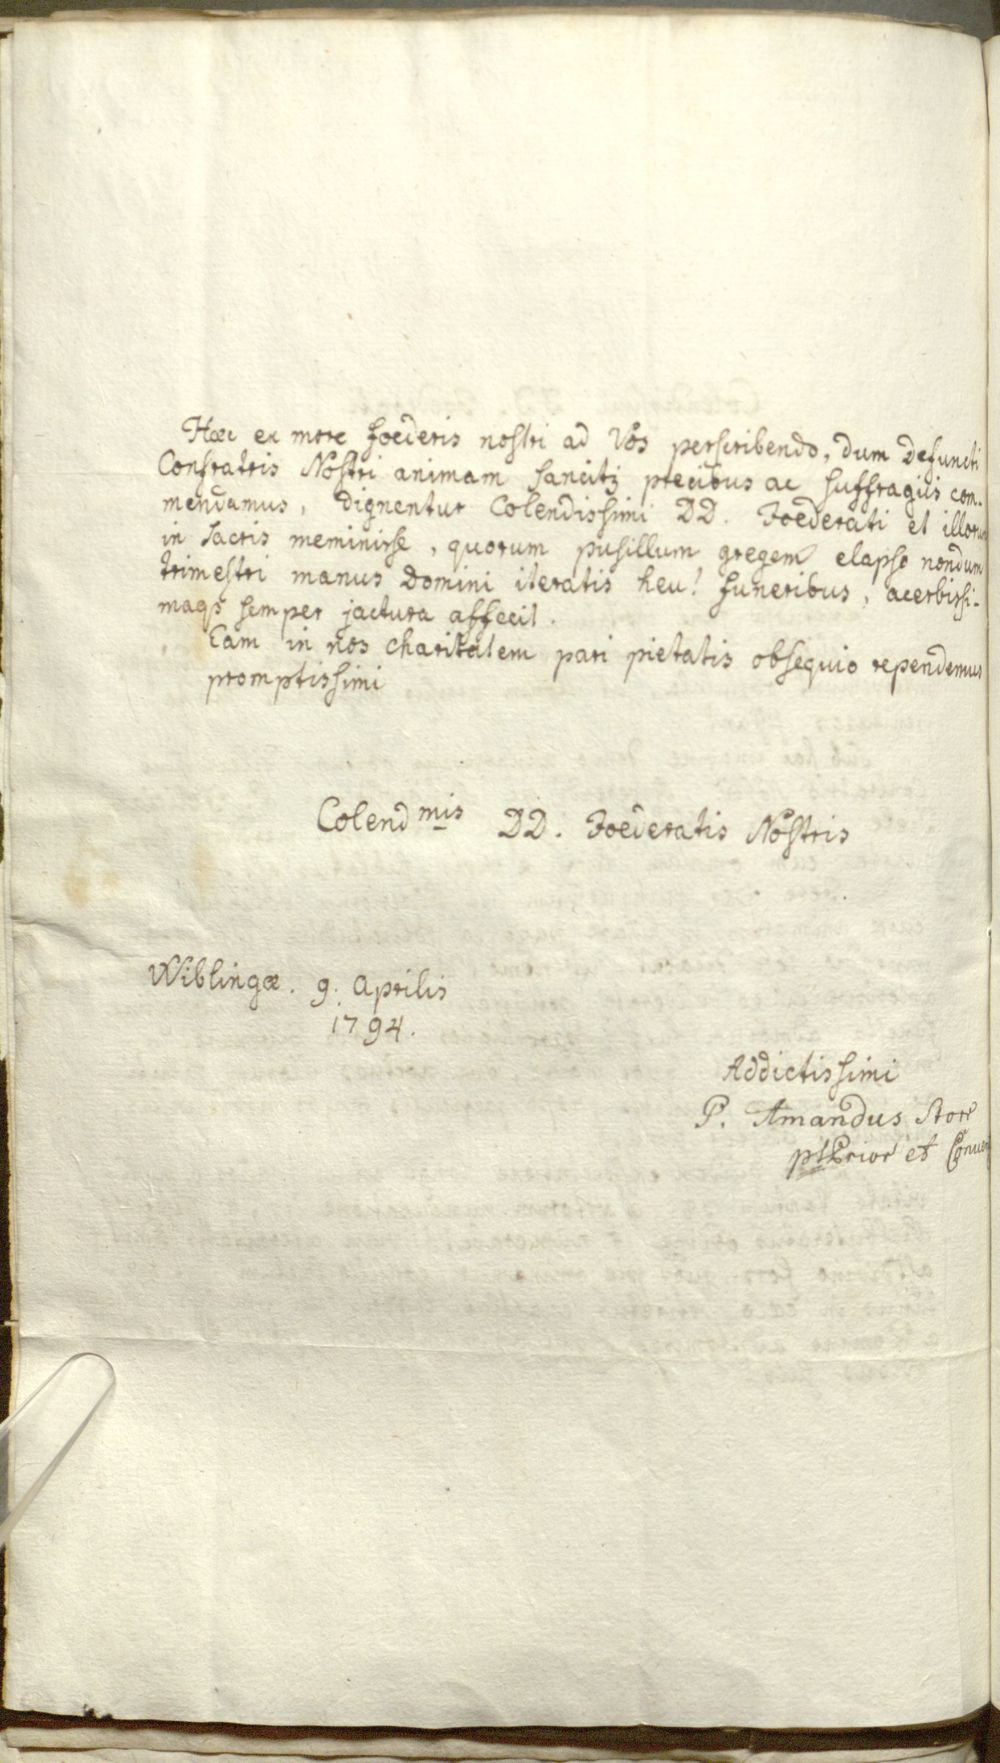 Hæc ex more foederis nostri ad Vos perscribendo, dum Defuncti
Confratris Nostri animam sancitis precibus ac suffragiis com-
mendamus, dignentur Colendissimi DD. Foederati et illorum
in sacris meminisse, quorum pusillum gregem elapso nondum
trimestri manus Domini iteratis heu! funeribus, acerbissi-
maq3 semper jactura affecit.
Eam in nos charitatem pari pietatis obsequio rependemus
promptissimi
Colendmis DD. Foederatis Nostris
Wiblingæ. 9. Aprilis
1794.
Addictissimi
P. Amandus Storr
p.t. Prior et Conven